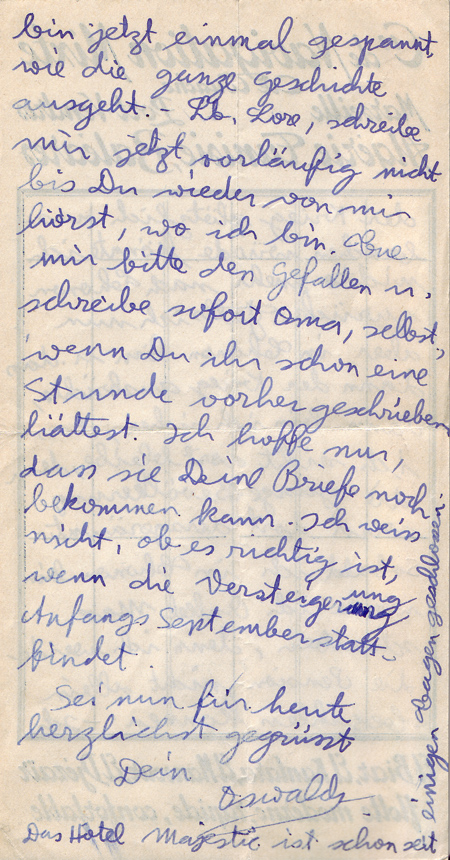 bin jetzt einmal gespannt,
wie die ganze Geschichte
ausgeht.- Lb. Lore, schreibe
mir jetzt vorläufig nicht
bis Du wieder von mir
hörst, wo ich bin. Tue
mir bitte den Gefallen u.
schreibe sofort Oma, selbst,
wenn Du ihr schon eine
Stunde vorher geschrieben
hättest. Ich hoffe nur,
dass sie Deine Briefe noch
bekommen kann. Ich weiss
nicht, ob es richtig ist,
wenn die Versteigerung
Anfangs September statt-
findet.
Sei nun für heute
herzlichst gegrüsst
Dein
Oswald
Das Hotel Majestic ist schon seit
einigen Tagen geschlossen